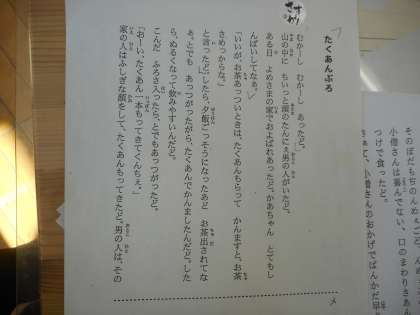 たくあんぶろ
むかーし むかーし あったど。
山の中に ちいっと頭のたんにぇ男の人がいたど。
ある日 よめさまの家でおよばれあったど。かあちゃん とても
んぱいしてなぁ、
「いいが、お茶あっついときは、たくあんもらって かんますど、お茶
さめっからな。」
と言ったど。したら、夕飯ごっそうになったあど お茶出されてな
ぁ。とても あっつがったがら、たくあんでかんましたんだど。した
ら、ぬるくなって飲みやすいんだど。
こんだ ふろさ入ったら、とてもあっつがったど。
「おーい、たくあん一本もってきてくんちぇ。」
家の人はふしぎな顔をして、たくあんもってきたど。男の人は、その
小僧さんは喜んでない、口のまわりさあん
つけて食ったど。
さて、小僧さんのおかげでばんかだ早